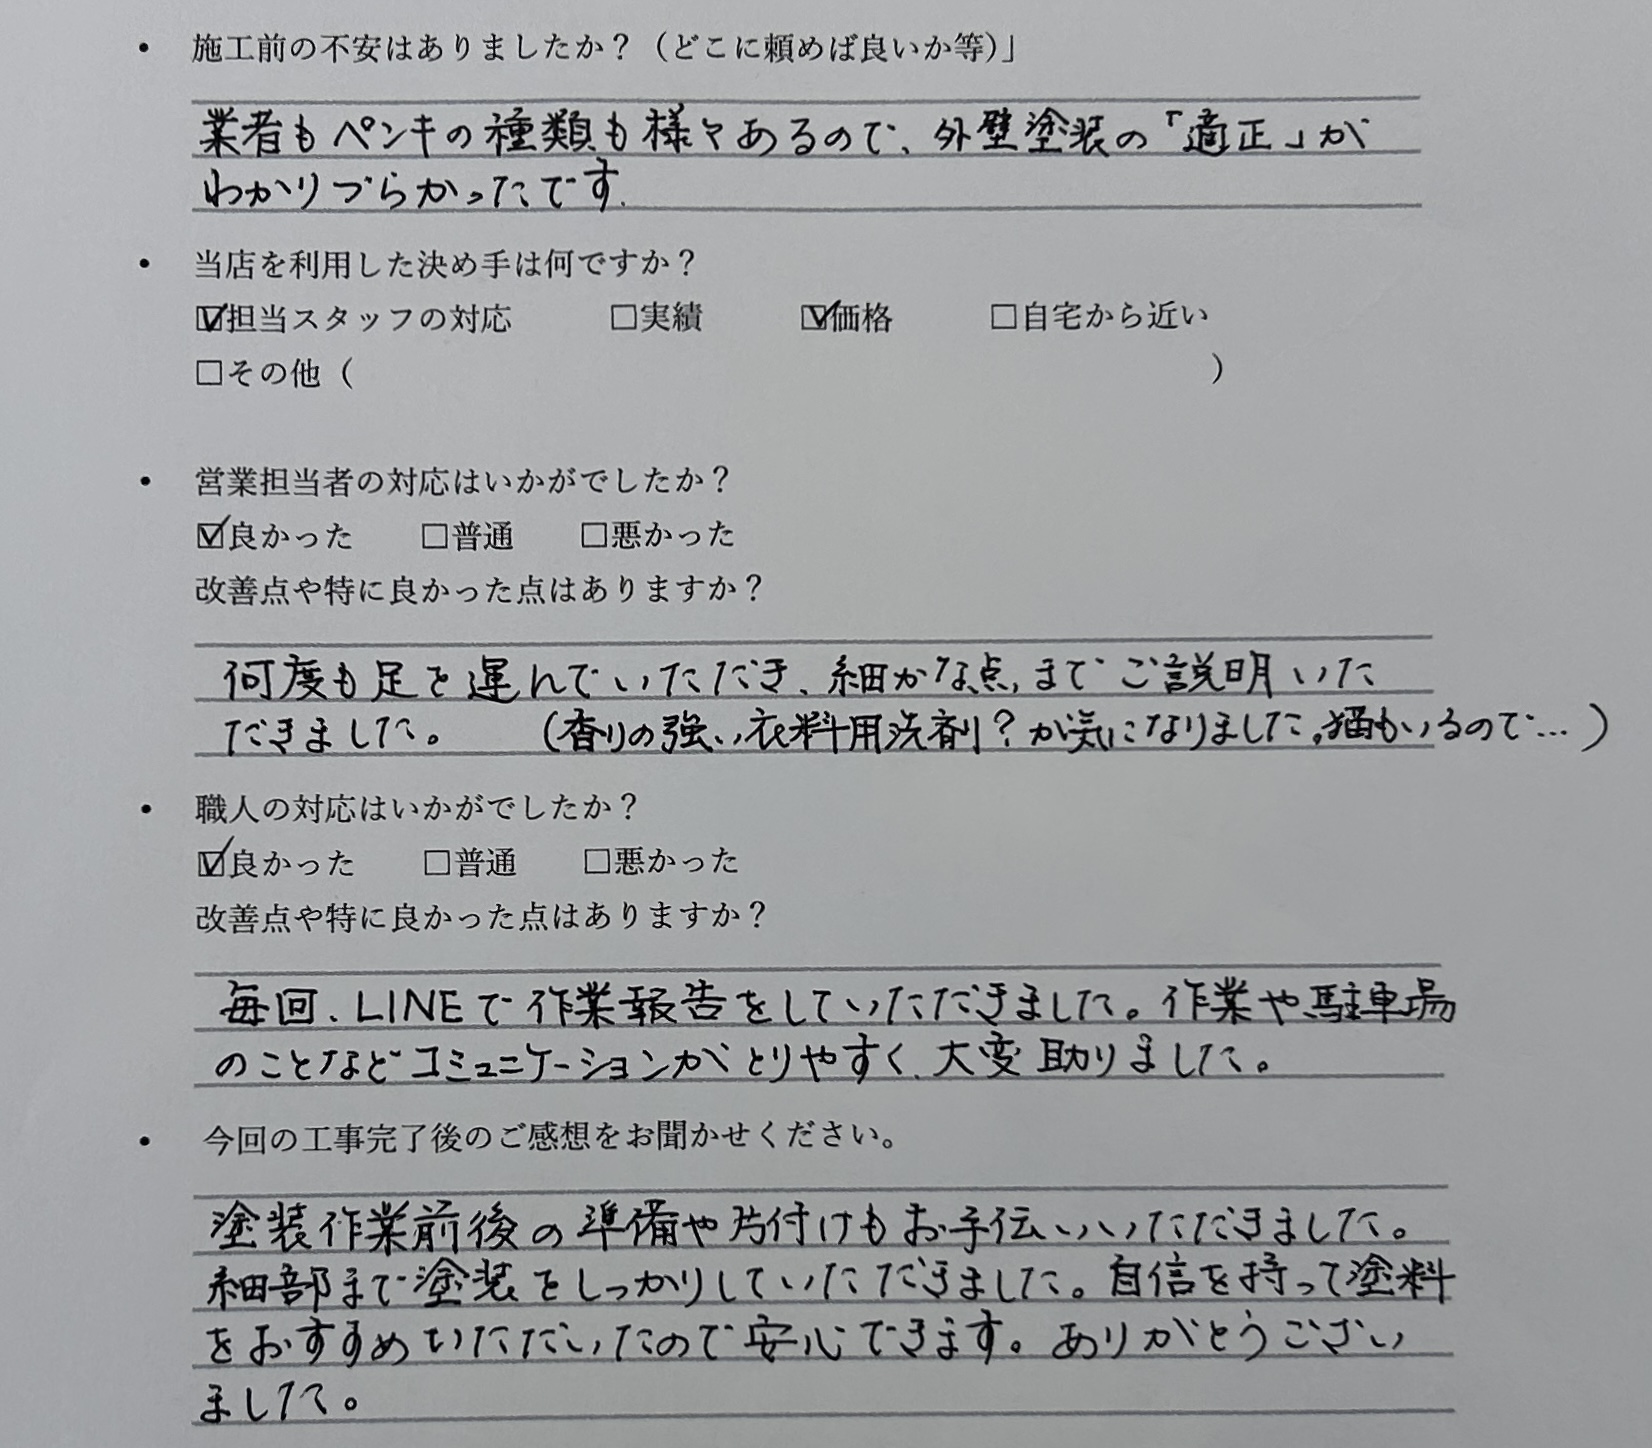 • 施工前の不安はありましたか？（どこに頼めば良いか等）」
業者もペンキの種類も様々あるので、外壁塗装の「適正」が
わかりづらかったです.
• 当店を利用した決め手は何ですか？
☑担当スタッフの対応 □実績 ☑価格 □自宅から近い
□その他（ ）
• 営業担当者の対応はいかがでしたか？
☑良かった □普通 □悪かった
改善点や特に良かった点はありますか？
何度も足を運んでいただき、細かな点、までご説明いた
だきました。 （香りの強い衣料用洗剤？が気になりました。猫もいるので…）
• 職人の対応はいかがでしたか？
☑良かった □普通 □悪かった
改善点や特に良かった点はありますか？
毎回、LINEで作業報告をしていただきました。作業や駐車場
のことなどコミュニケーションがとりやすく、大変助りました。
• 今回の工事完了後のご感想をお聞かせください。
塗装作業前後の準備や片付けもお手伝いいただきました。
細部まで塗装をしっかりしていただきました。自信を持って塗料
をおすすめいただいたので安心できます。ありがとうござい
ました。